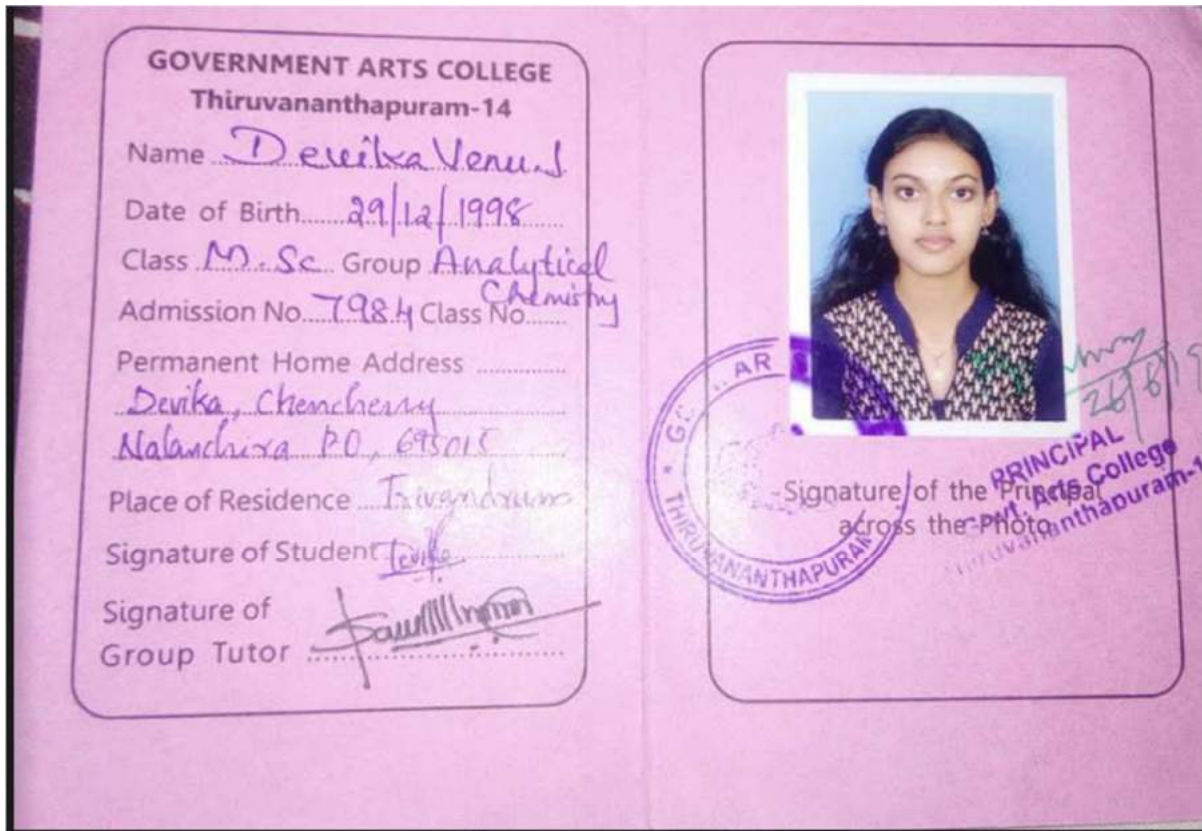 GOVERNMENT ARTS COLLEGE
Thiruvananthapuram-14
Name Devika Venu.J
Date of Birth 29/12/1998
Class M.Sc Group Analytical
Chemistry
Admission No. 7984 Class No
Permanent Home Address
Devika, Chencherry
Nalanchira PO, 695015
Place of Residence Trivandrum
Signature of Student Devika
Signature of
Group Tutor
AR
THIRUVANANTHAPURAM
26/6/19
PRINCIPAL
Govt. Arts College
Thiruvananthapuram-1
Signature of the Principal
across the Photo